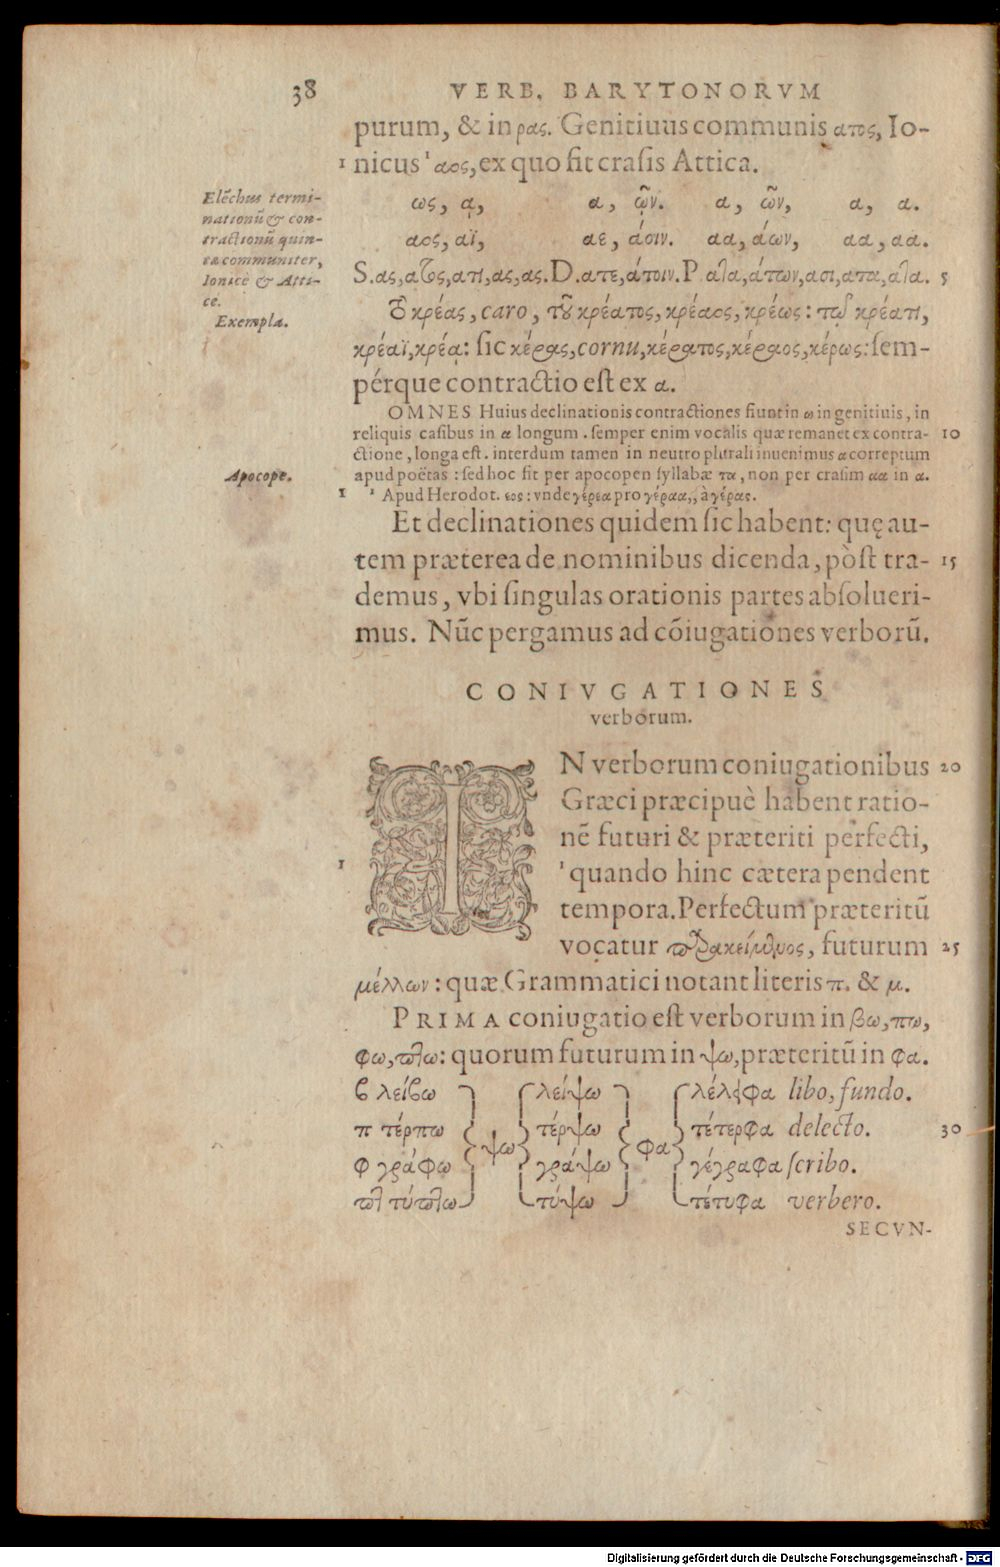 38 VERB. BARYTONORVM
purum, & in ρας. Genitiuus communis ατος, Io-
1 nicus ¹ αος, ex quo fit crasis Attica.
Elẽchus termi-
nationũ & con-
tractionũ quin-
tæ communiter,
Ionicè & Atti-
cè.
Exempla.
ως, ᾳ, α, ῷν. α, ῶν, α, α.
αος, αϊ, αε, άοιν. αα, άων, αα, αα.
S. ας, ατος, ατι, ας, ας. D. ατε, άτοιν. P. ατα, άτων, ασι, ατα, ατα. 5
Ὁ κρέας, caro, τοῦ κρέατος, κρέαος, κρέως: τῷ κρέατι,
κρέαϊ, κρέᾳ: sic κέρας, cornu, κέρατος, κέραος, κέρως: sem-
pérque contractio est ex α.
OMNES Huius declinationis contractiones fiunt in ω in genitiuis, in
reliquis casibus in α longum. semper enim vocalis quæ remanet ex contra- 10
ctione, longa est. interdum tamen in neutro plurali inuenimus α correptum
Apocope.
apud poëtas: sed hoc fit per apocopen syllabæ τα, non per crasim αα in α.
1 ¹ Apud Herodot. εος: vnde γέρεα pro γέραα,, à γέρας.
Et declinationes quidem sic habent: quę au-
tem præterea de nominibus dicenda, pòst tra- 15
demus, vbi singulas orationis partes absolueri-
mus. Nũc pergamus ad cõiugationes verborũ.
CONIVGATIONES
verborum.
IN verborum coniugationibus 20
Græci præcipuè habent ratio-
nẽ futuri & præteriti perfecti,
1 ¹ quando hinc cætera pendent
tempora. Perfectum præteritũ
vocatur παρακείμενος, futurum 25
μέλλων: quæ Grammatici notant literis π. & μ.
PRIMA coniugatio est verborum in βω, πω,
φω, πτω: quorum futurum in ψω, præteritũ in φα.
β λείβω λείψω λέλειφα libo, fundo.
π τέρπω τέρψω τέτερφα delecto. 30
ψω φα
φ γράφω γράψω γέγραφα scribo.
πτ τύπτω τύψω τέτυφα verbero.
SECVN-
Digitalisierung gefördert durch die Deutsche Forschungsgemeinschaft - DFG